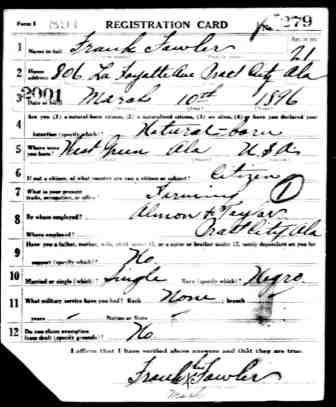 Form 1 REGISTRATION CARD No. 279
1 Name in full Frank Fowler Age, in yrs 21
2 Home address 806 La Fayette Ave Pratt City Ala
3 Date of birth March 10th 1896
4 Are you (1) a natural-born citizen, (2) a naturalized citizen, (3) an alien, (4) or have you declared your
intention (specify which)? Natural-born
5 Where were you born? West Green Ala USA
6 If not a citizen, of what country are you a citizen or subject? Citizen
7 What is your present trade, occupation, or office? Farming 1
8 By whom employed? Taylor
Where employed? Pratt City Ala
9 Have you a father, mother, wife, child under 12, or a sister or brother under 12, solely dependent on you for
support (specify which)? No
10 Married or single (which)? Single Race (specify which)? Negro
11 What military service have you had? Rank None ; branch
years Nation or State
12 Do you claim exemption from draft (specify grounds)? No
I affirm that I have verified above answers and that they are true.
Frank X Fowler
Mark